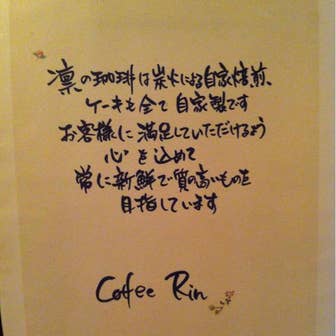 凛の珈琲は炭火による自家焙煎、
ケーキも全て自家製です
お客様に満足していただけるよう
心を込めて
常に新鮮で質の高いものを
目指しています
Coffee Rin